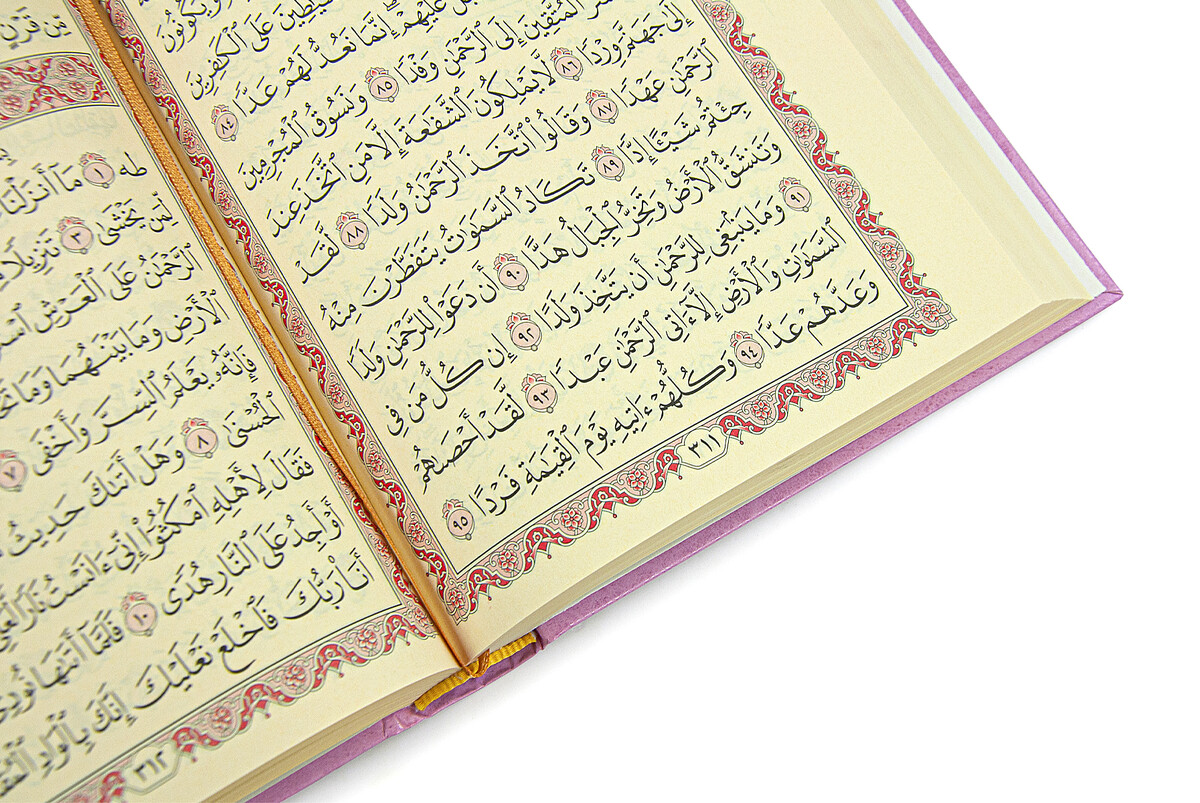 وَيَكُونُونَ
عَلَى ٱلْكَٰفِرِينَ
عَلَيْهِمْ ۖ إِنَّمَا نَعُدُّ لَهُمْ عَدًّا ٨٤
ٱلْمُتَّقِينَ إِلَى ٱلرَّحْمَٰنِ وَفْدًا ٨٥ وَنَسُوقُ ٱلْمُجْرِمِينَ
إِلَىٰ جَهَنَّمَ وِرْدًا ٨٦ لَّا يَمْلِكُونَ ٱلشَّفَٰعَةَ إِلَّا مَنِ ٱتَّخَذَ عِندَ
ٱلرَّحْمَٰنِ عَهْدًا ٨٧ وَقَالُوا۟ ٱتَّخَذَ ٱلرَّحْمَٰنُ وَلَدًا ٨٨ لَّقَدْ
جِئْتُمْ شَيْـًٔا إِدًّا ٨٩ تَكَادُ ٱلسَّمَٰوَٰتُ يَتَفَطَّرْنَ مِنْهُ
وَتَنشَقُّ ٱلْأَرْضُ وَتَخِرُّ ٱلْجِبَالُ هَدًّا ٩٠ أَن دَعَوْا۟ لِلرَّحْمَٰنِ وَلَدًا
٩١ وَمَا يَنۢبَغِى لِلرَّحْمَٰنِ أَن يَتَّخِذَ وَلَدًا ٩٢ إِن كُلُّ مَن فِى
ٱلسَّمَٰوَٰتِ وَٱلْأَرْضِ إِلَّآ ءَاتِى ٱلرَّحْمَٰنِ عَبْدًا ٩٣ لَّقَدْ أَحْصَىٰهُمْ
وَعَدَّهُمْ عَدًّا ٩٤ وَكُلُّهُمْ ءَاتِيهِ يَوْمَ ٱلْقِيَٰمَةِ فَرْدًا ٩٥
٣١١
مِّن قَرْنٍ
طه ١ مَآ أَنزَلْنَا
لِّمَن يَخْشَىٰ ٣ تَنزِيلًا
ٱلرَّحْمَٰنُ عَلَى ٱلْعَرْشِ
ٱلْأَرْضِ وَمَا بَيْنَهُمَا وَمَا
فَإِنَّهُۥ يَعْلَمُ ٱلسِّرَّ وَأَخْفَى ٧
ٱلْحُسْنَىٰ ٨ وَهَلْ أَتَىٰكَ حَدِيثُ
فَقَالَ لِأَهْلِهِ ٱمْكُثُوٓا۟ إِنِّىٓ ءَانَسْتُ نَارًا
أَوْ أَجِدُ عَلَى ٱلنَّارِ هُدًى ١٠ فَلَمَّآ أَتَىٰهَا
أَنَا۠ رَبُّكَ فَٱخْلَعْ نَعْلَيْكَ إِنَّكَ بِٱلْوَادِ
٣١٢